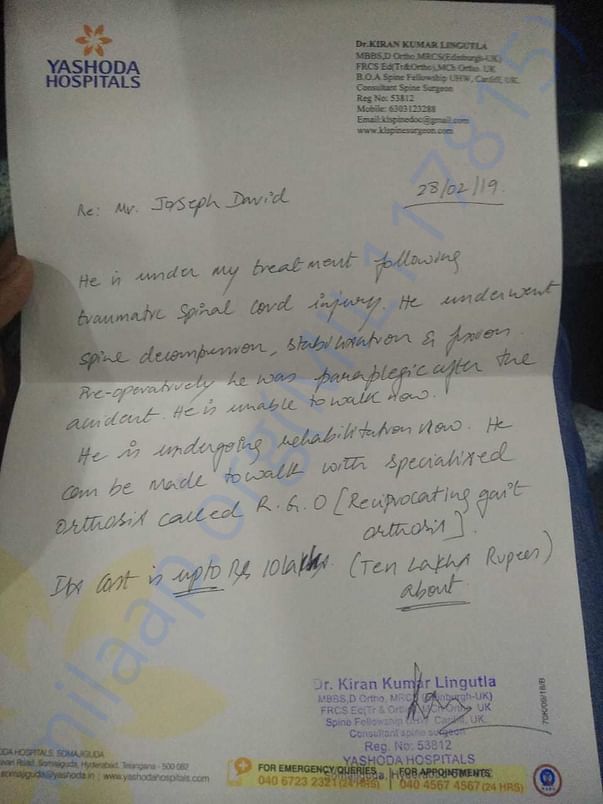 YASHODA
HOSPITALS
Dr.KIRAN KUMAR LINGUTLA
MBBS,D Ortho,MRCS(Edinburgh-UK)
FRCS Ed(Tr&Ortho),MCh Ortho. UK
B.O.A Spine Fellowship UHW, Cardiff, UK.
Consultant Spine Surgeon
Reg No: 53812
Mobile: 6303123288
Email:klspinedoc@gmail.com
www.klspinesurgeon.com
28/02/19.
Re: Mr. Joseph David
He is under my treatment following
traumatic spinal cord injury. He underwent
spine decompression, stabilization & fusion.
Pre-operatively he was paraplegic after the
accident. He is unable to walk now.
He is undergoing rehabilitation now. He
can be made to walk with specialized
orthosis called R.G.O [Reciprocating gait
orthosis].
Its cost is upto Rs 10 lakhs. (Ten Lakhs Rupees)
about
Dr. Kiran Kumar Lingutla
MBBS,D Ortho,MRCS(Edinburgh-UK)
FRCS Ed(Tr & Ortho), MCh Ortho. UK
Spine Fellowship UHW, Cardiff, UK.
Consultant spine surgeon
Reg. No: 53812
YASHODA HOSPITALS
Somajiguda, Hyderabad
YKOC/09/18/B
HOSPITALS, SOMAJIGUDA
Road, Somajiguda, Hyderabad, Telangana - 500 082
somajiguda@yashoda.in | www.yashodahospitals.com
FOR EMERGENCY/QUERIES
040 6723 2321 (24 HRS)
FOR APPOINTMENTS
040 4567 4567 (24 HRS)
milaap.org